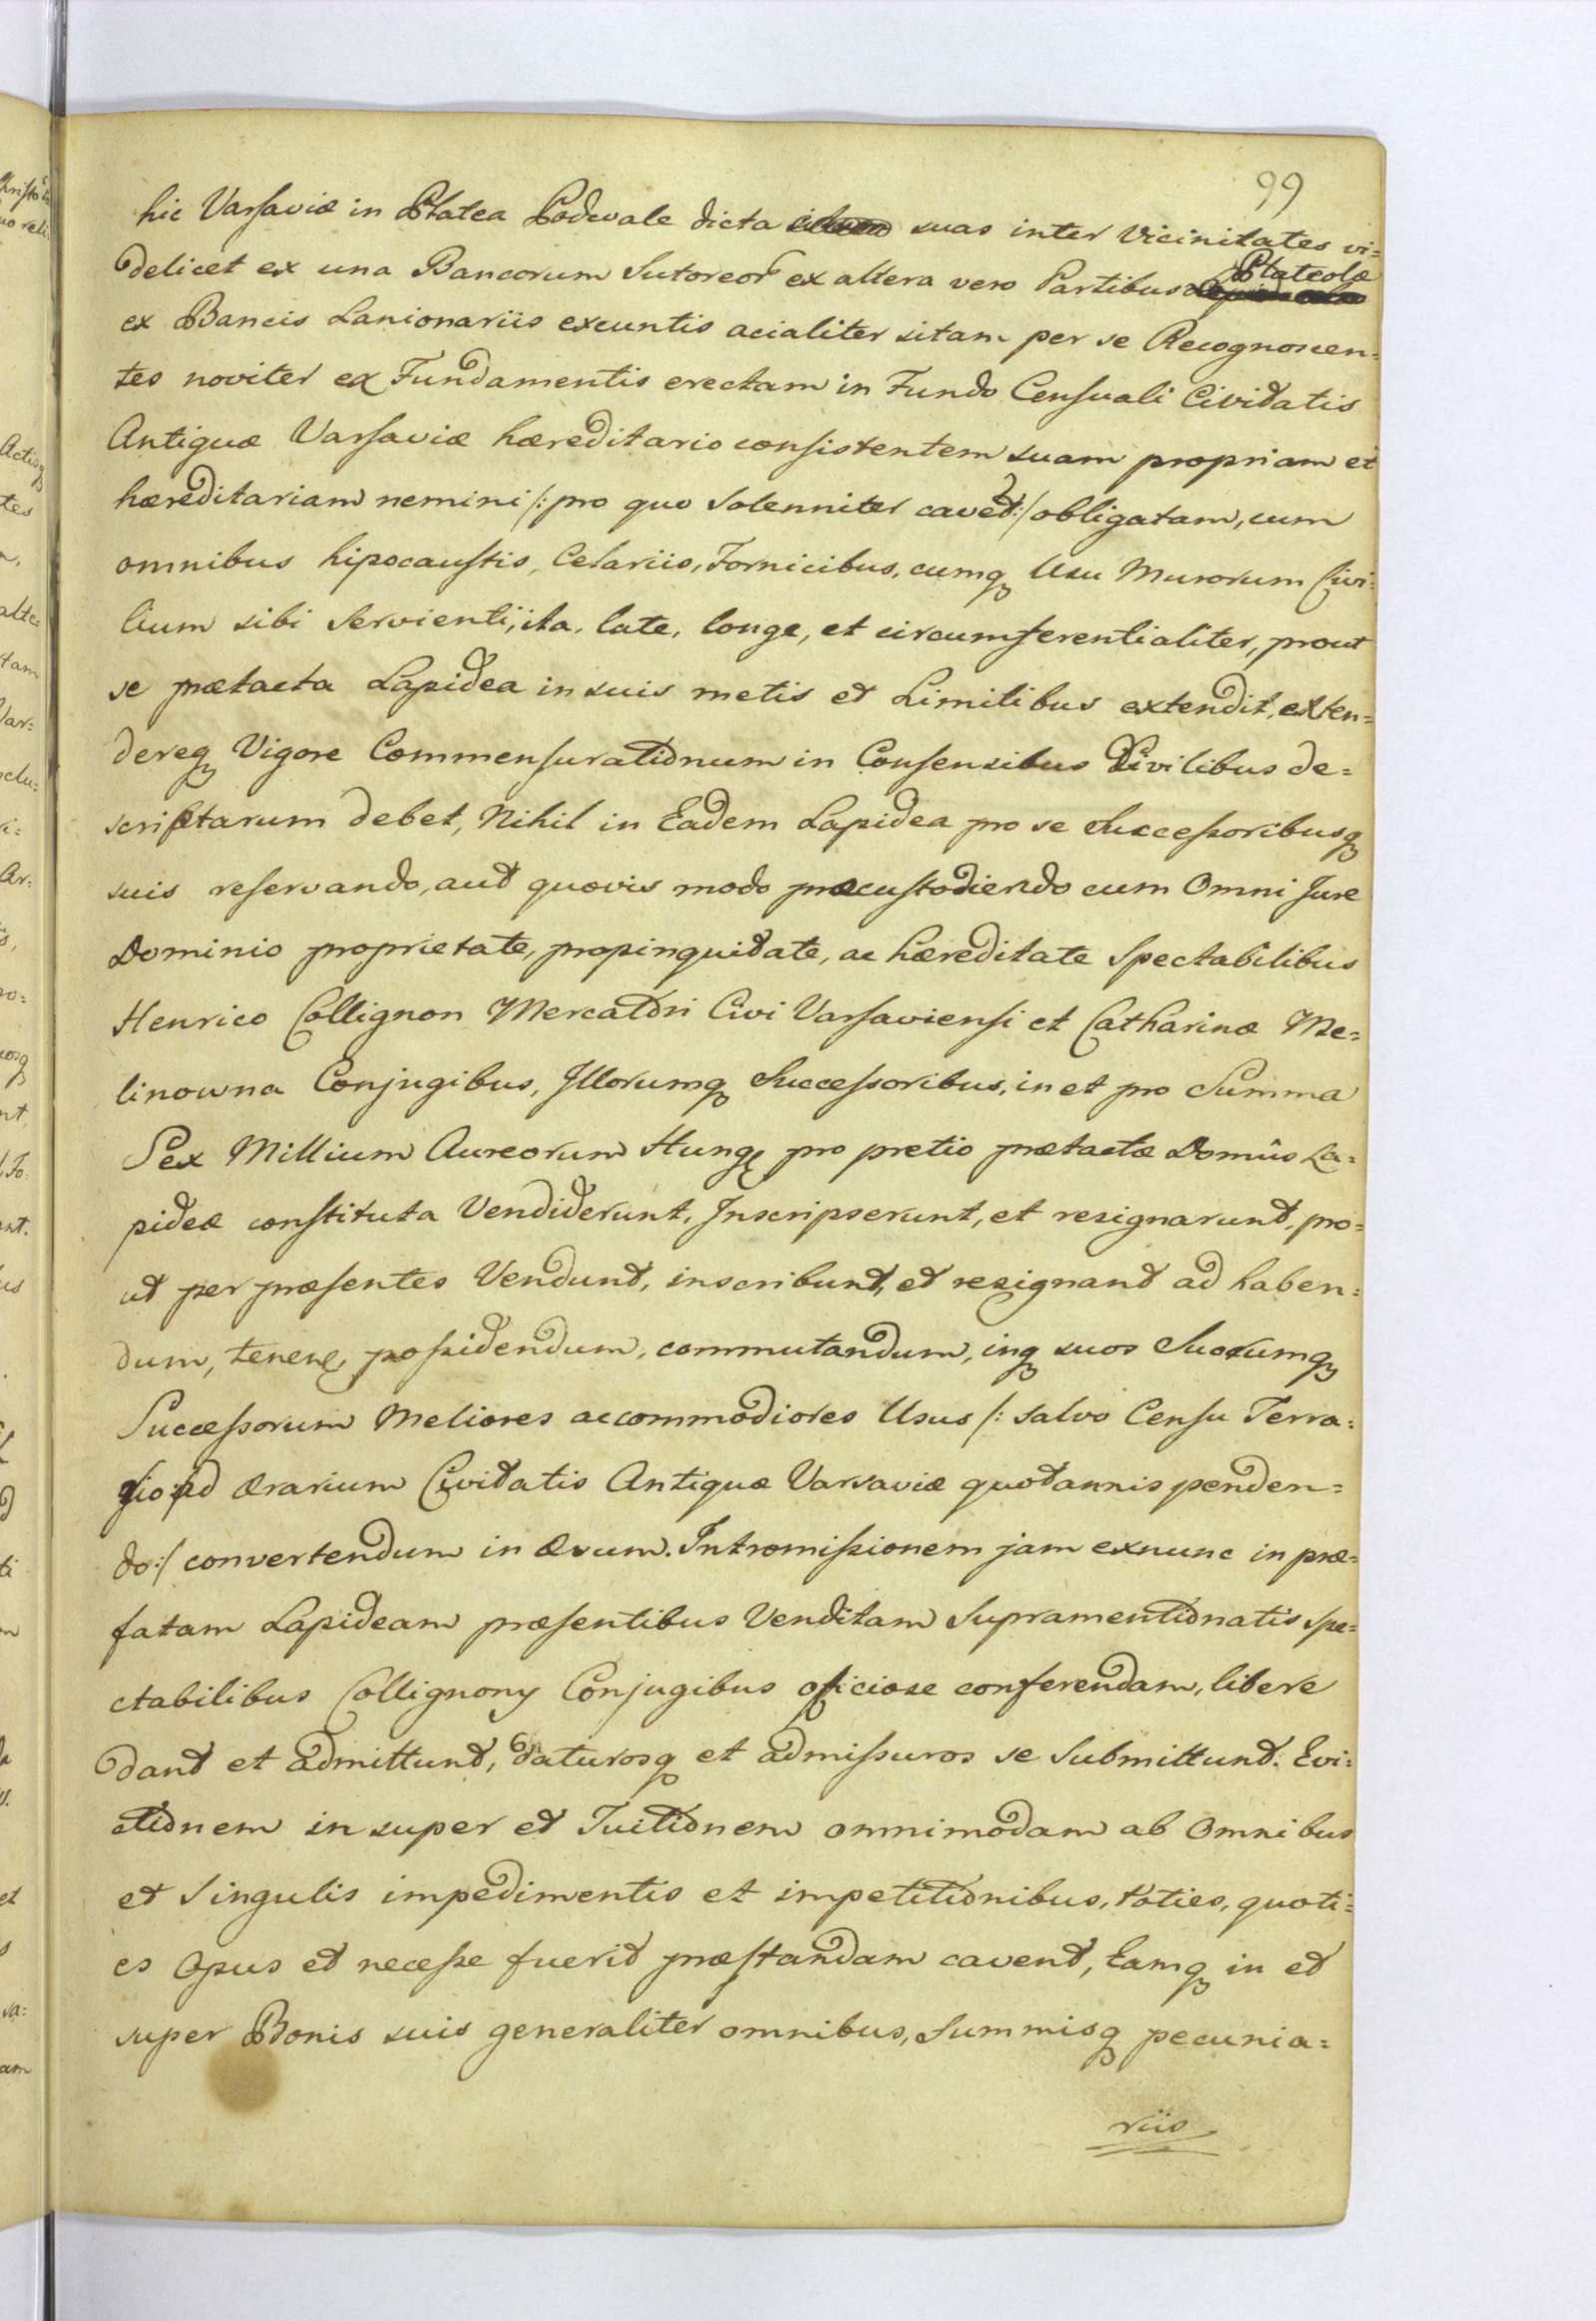 99
hic Varsaviæ in Platea Podwale dicta suas inter Vicinitates vi=
delicet ex una Bancorum Sutoreor ex altera vero Partibus Plateolæ
ex Bancis Lanionariis exeuntis acialiter sitam per se Recognoscen=
tes noviter ex Fundamentis erectam in Fundo Censuali Civitatis
Antiquæ Varsaviæ hæreditario consistentem suam propriam et
hæreditariam nemini /: pro quo Solenniter cavet :/ obligatam, cum
omnibus hipocaustis, Celariis, Fornicibus, cumq Usu Murorum Civi=
lium sibi Servienti, ita, late, longe, et circumferentialiter, prout
se prætacta Lapidea in suis metis et Limitibus extendit, exten=
dereq Vigore Commensurationum in Consensibus Civilibus de=
scriptarum debet, Nihil in Eadem Lapidea pro se Successoribusq
suis reservando, aut quovis modo præcustodiendo cum Omni Jure
Dominio proprietate, propinquitate, ac hæreditate Spectabilibus
Henrico Collignon Mercatori Civi Varsaviensi et Catharinæ Me=
linowna Conjugibus, Illorumq Successoribus, in et pro Summa
Sex Millium Aureorum Hung pro pretio prætactæ Domûs La=
pideæ constituta Vendiderunt, Inscripserunt, et resignarunt, pro=
ut per præsentes Vendunt, inscribunt, et resignant ad haben=
dum, tenend, possidendum, commutandum, inq suos Suorumq
Successorum Meliores accommodiores Usus /: salvo Censu Terra=
gio ad Ærarium Civitatis Antiquæ Varsaviæ quotannis penden=
do :/ convertendum in Ævum. Intromissionem jam exnunc in præ=
fatam Lapideam præsentibus Venditam Supramentionatis Spe=
ctabilibus Collignony Conjugibus officiose conferendam, libere
dant et admittunt, daturosq et admissuros se Submittunt. Evi=
ctionem insuper et Tuitionem omnimodam ab Omnibus
et Singulis impedimentis et impetitionibus, toties, quoti=
es Opus et necesse fuerit præstandam cavent, Eamq in et
super Bonis suis generaliter omnibus, Summisq pecunia=
riis